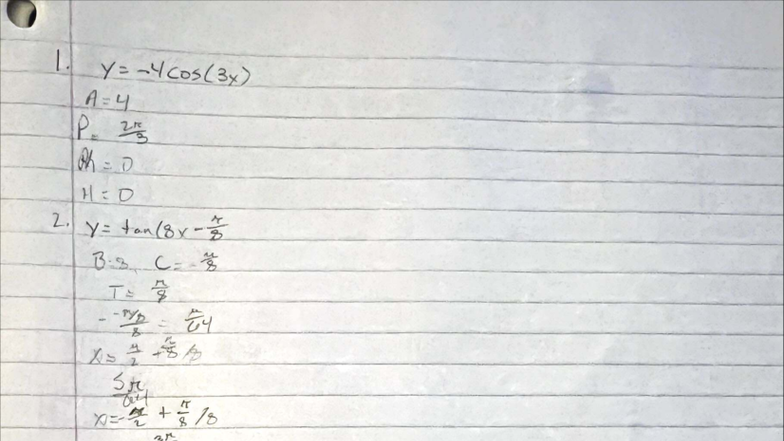 1. y = -4cos(3x)
A = 4
P = 2π/3
Ph = 0
H = 0
2. y = tan(8x - π/8
B = 8, C = -π/8
T = π/8
- -π/8/8 = π/64
x = π/2 + π/8 /8
5π/64
x = -π/2 + π/8 /8
3π